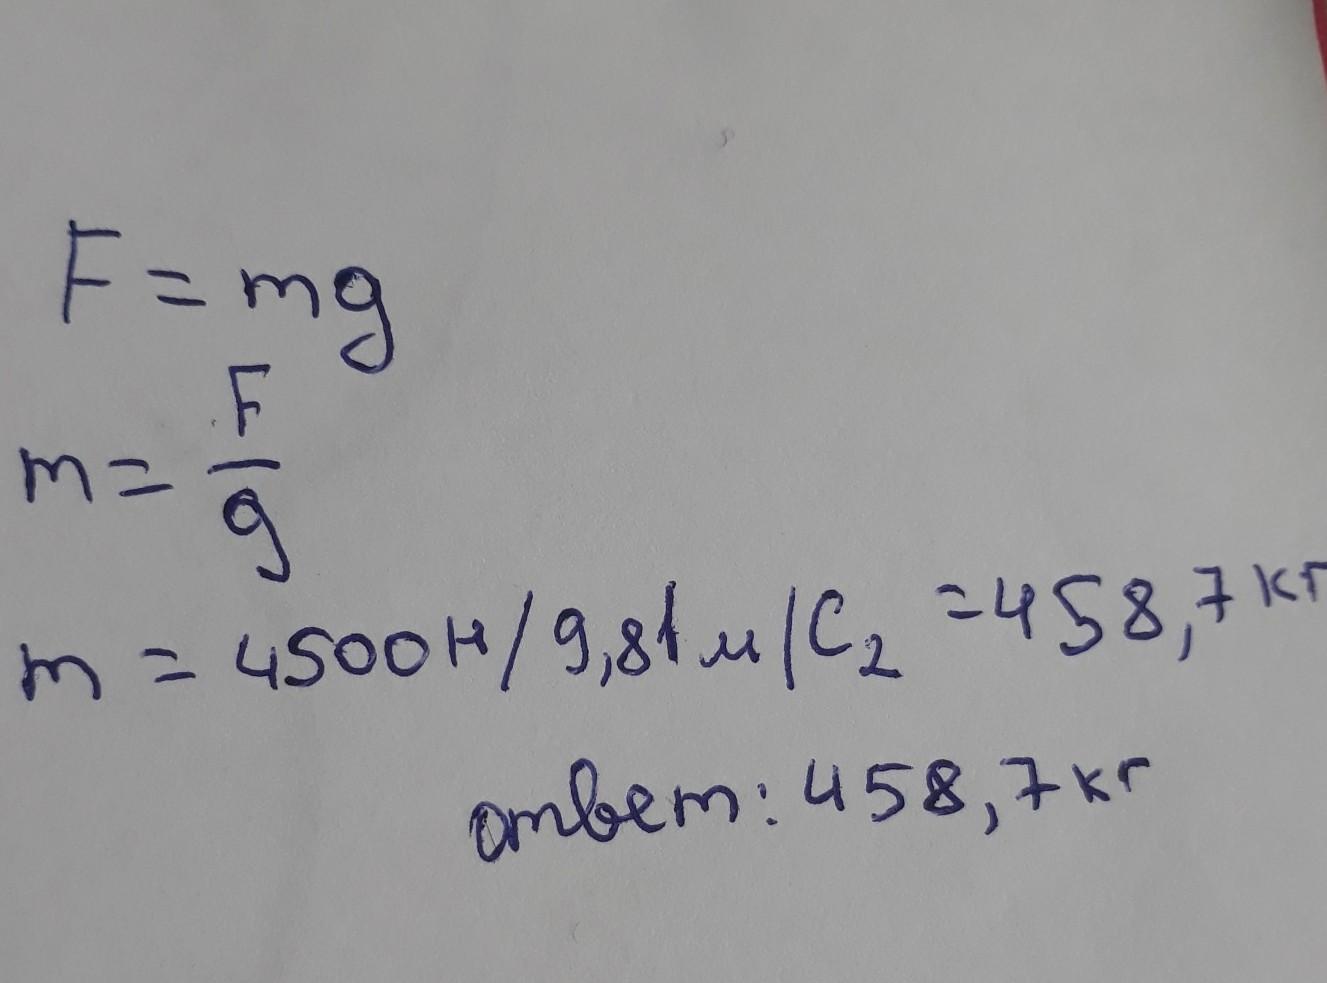 F = mg
m = F/g
m = 4500 Н/9,81 м/С₂ = 458,7 кг
ответ: 458,7 кг